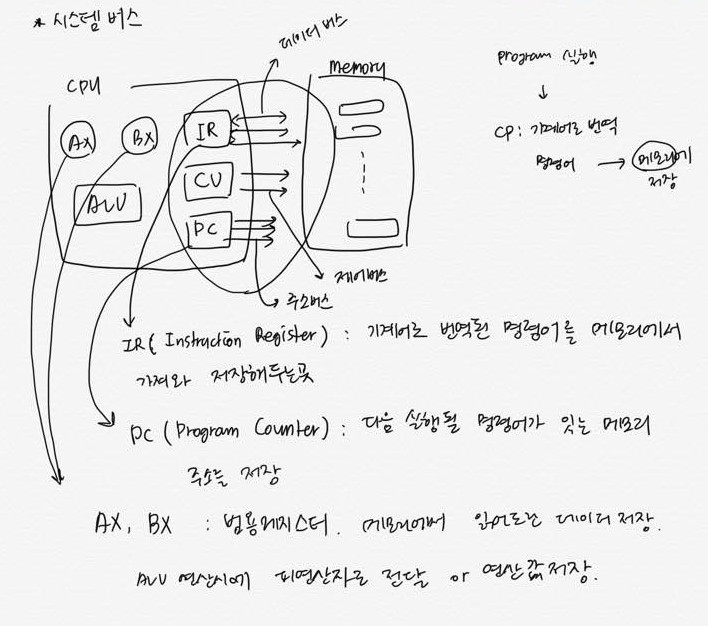 * 시스템 버스
데이터 버스
CPU
Memory
AX
BX
IR
CU
PC
ALU
제어버스
주소버스
program 실행
↓
CP : 기계어로 번역
명령어 → 메모리에
저장
IR ( Instruction Register ) : 기계어로 번역된 명령어를 메모리에서
가져와 저장해두는곳
PC ( Program Counter ) : 다음 실행될 명령어가 있는 메모리
주소를 저장
AX, BX : 범용레지스터. 메모리에서 읽어드린 데이터 저장.
ALU 연산시에 피연산자로 전달 or 연산값 저장.